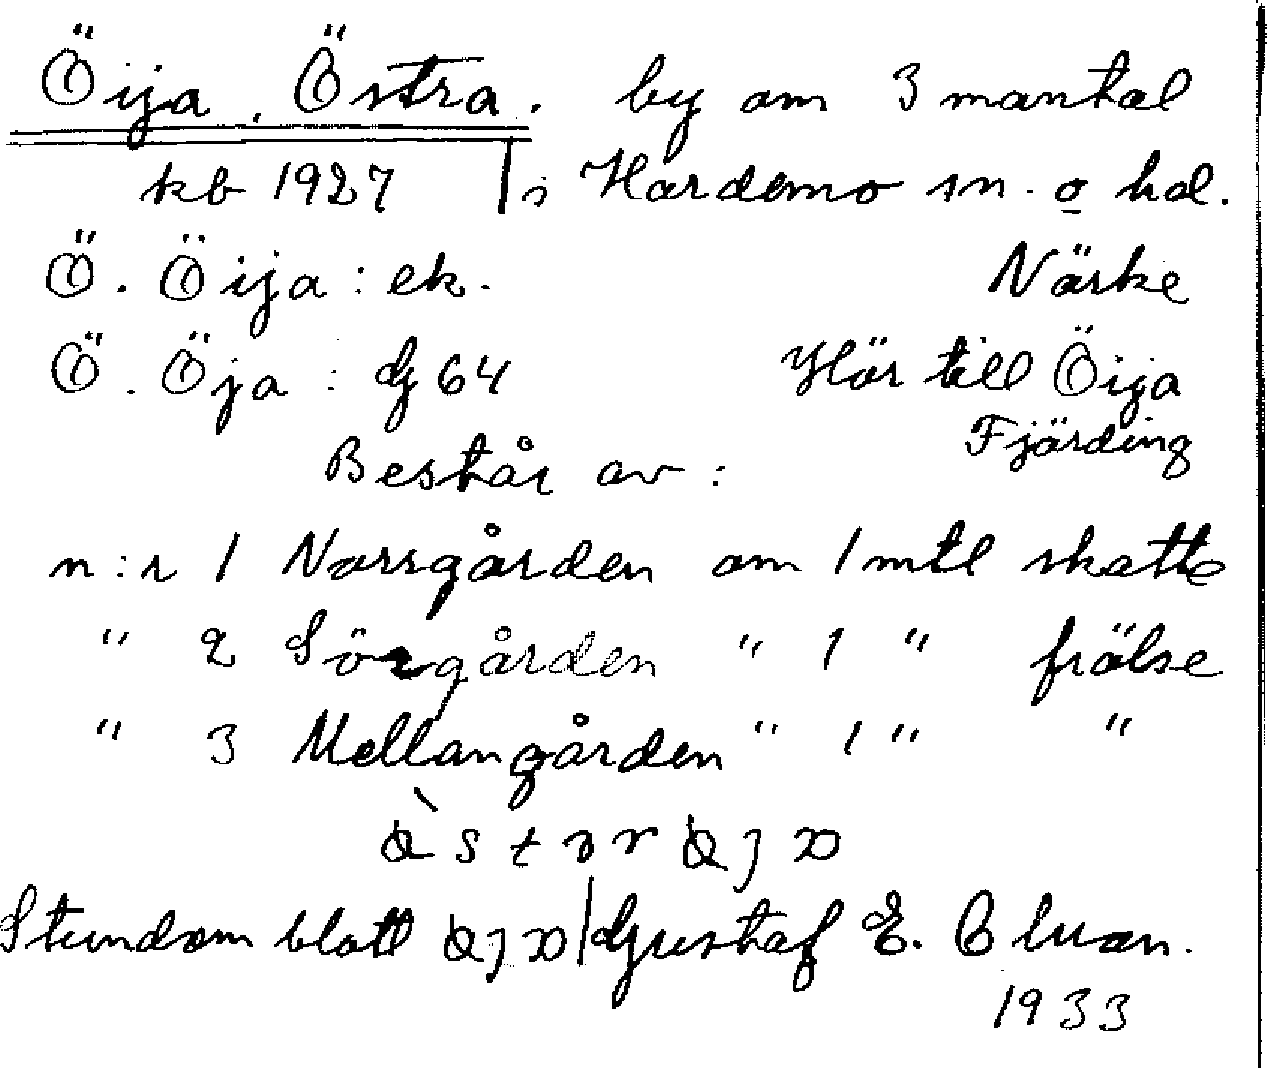 Öija, Östra. by om 3 mantal
kb 1927 i Hardemo sn. o hd.
Ö. Öija : ek. Närke
Ö. Öja : G 64 Hör till Öija
Fjärding
Består av :
n:r 1 Norrgården om 1 mtl skatte
" 2 Sörgården " 1 " frälse
" 3 Mellangården " 1 " "
Stundom blott Gustaf E.
1933